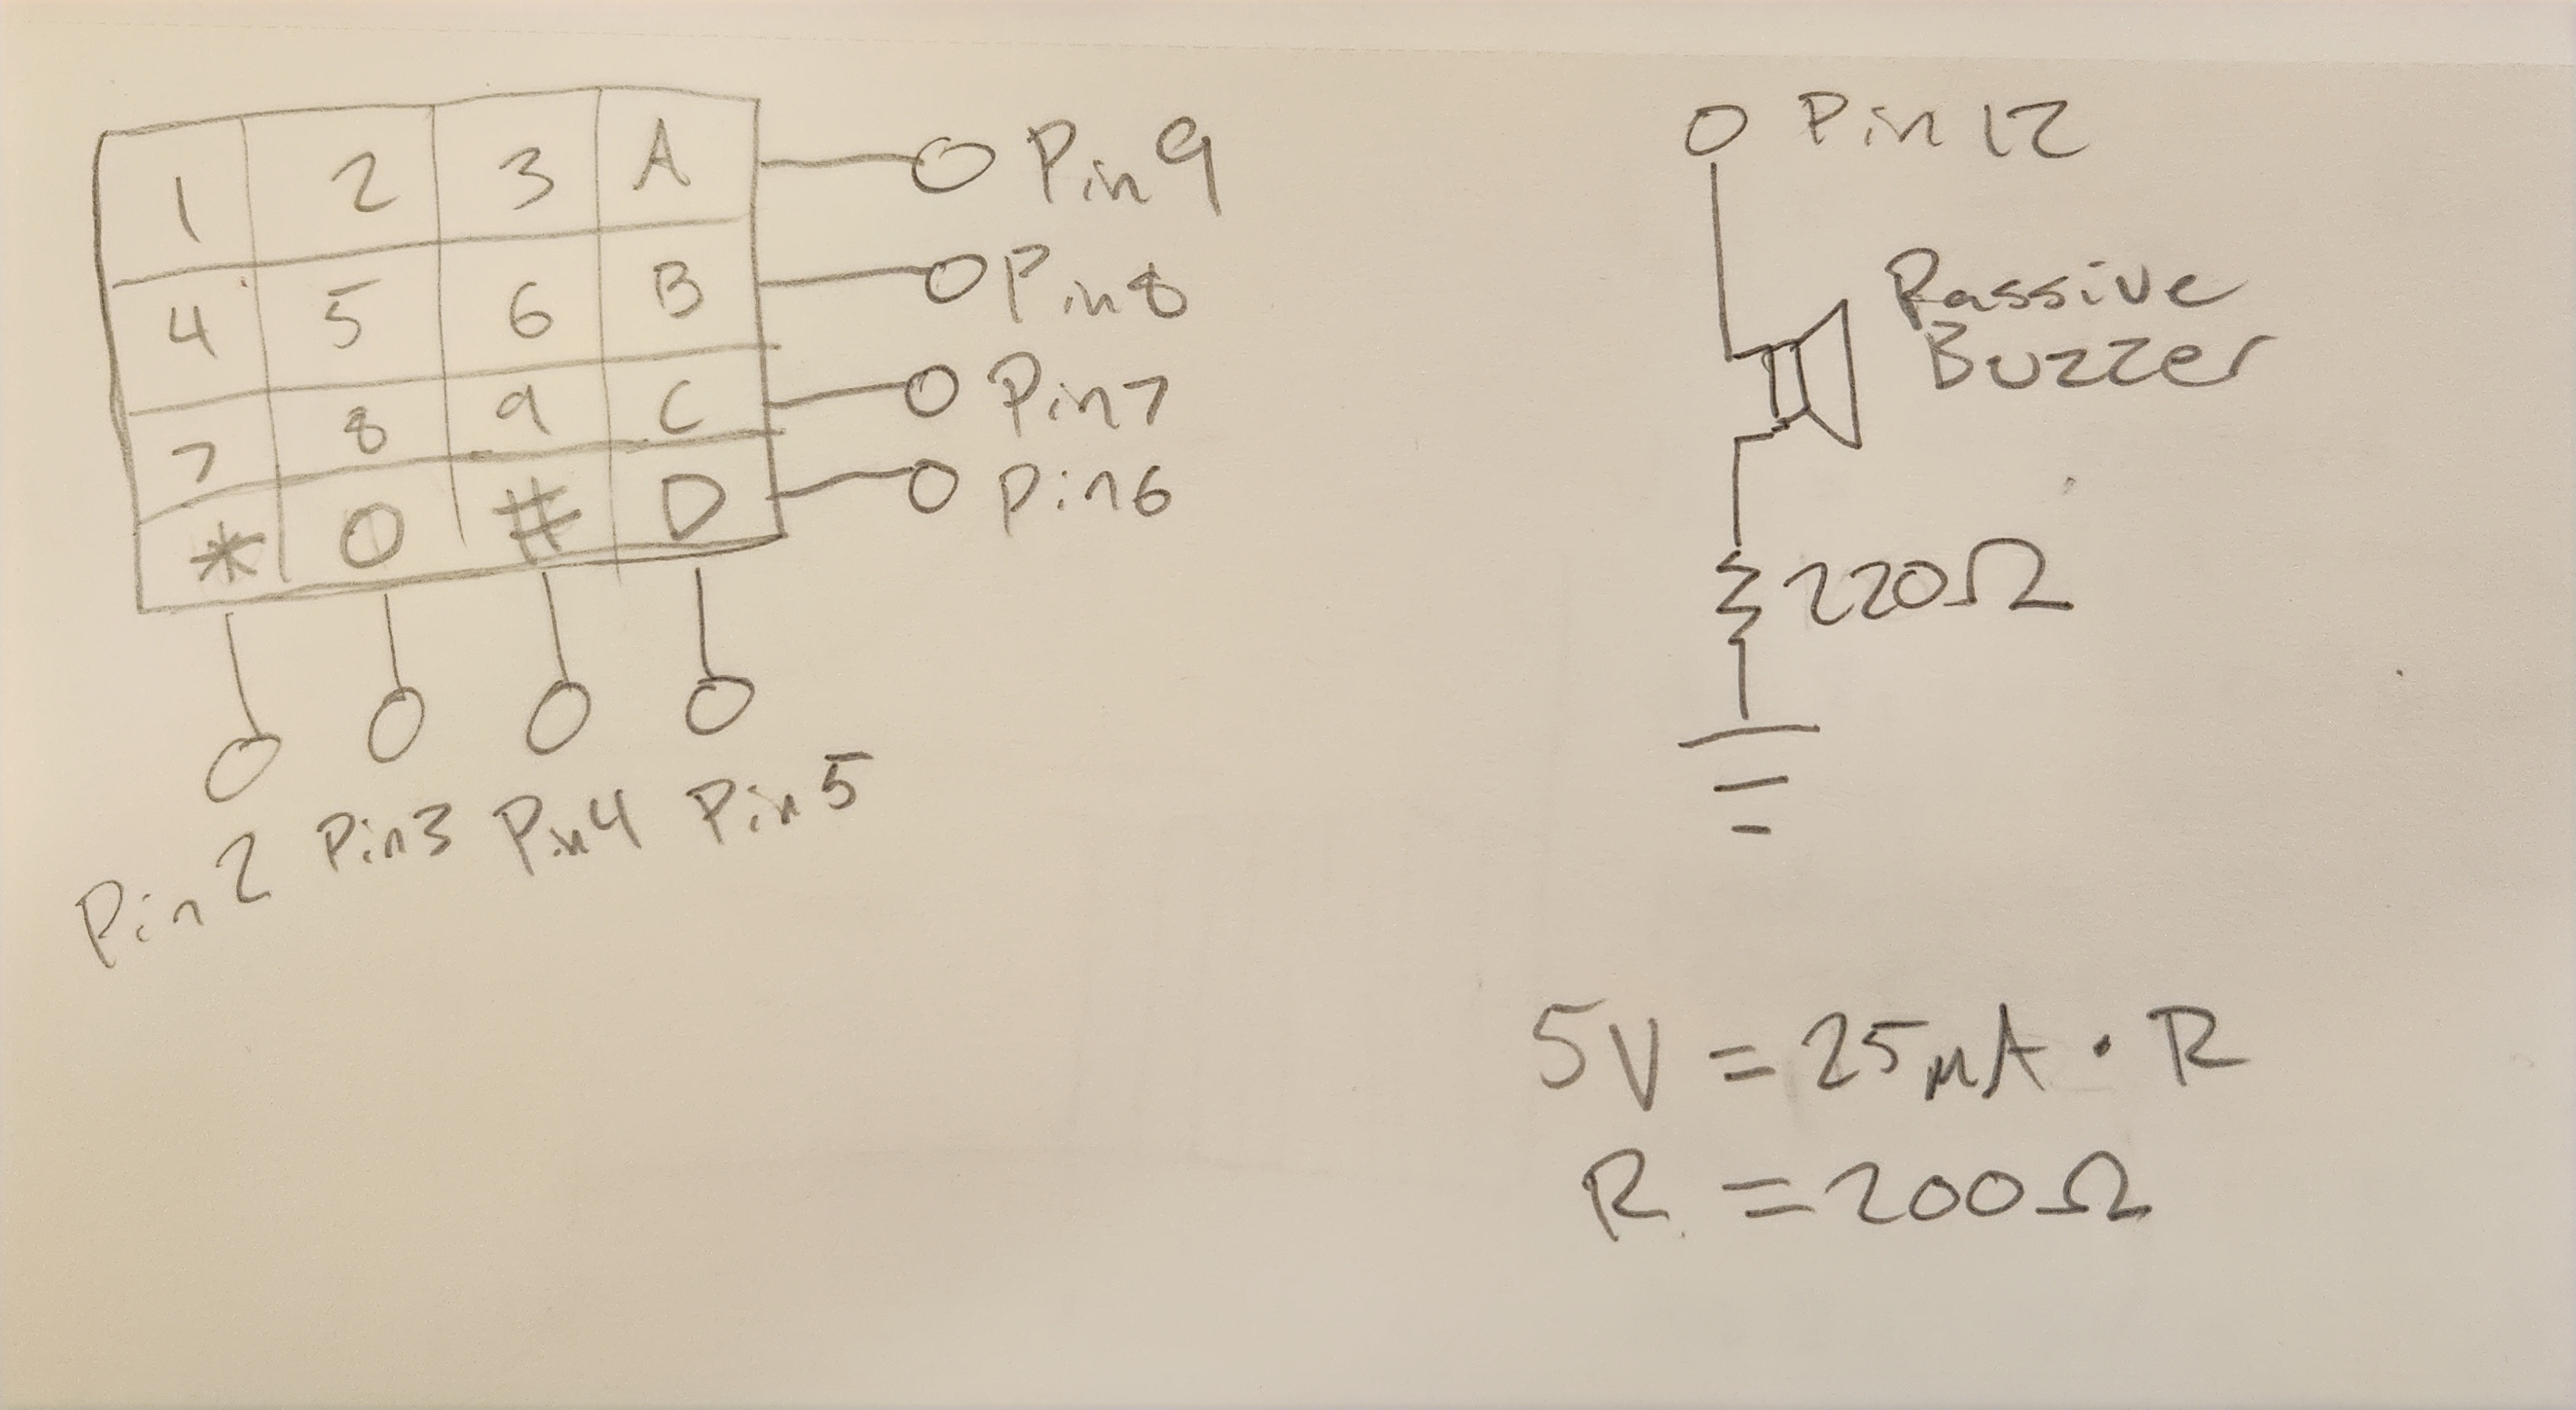 1 2 3 A
4 5 6 B
7 8 9 C
* 0 # D
Pin 9
Pin 8
Pin 7
Pin 6
Pin 2 Pin 3 Pin 4 Pin 5
Pin 12
Passive
Buzzer
220Ω
5V = 25mA · R
R = 200Ω